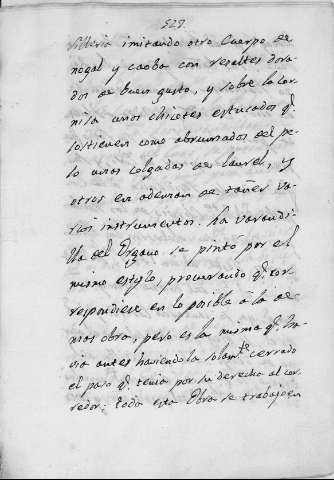 529.
Silleria imitando otro Cuerpo de
nogal y caoba con resaltes dora-
dos de buen gusto, y sobre la cor-
nisa unos chicotes estucados q.
sostienen como abrumados del pe-
so unas colgadas de laurel, y
otros en ademan de tañer va-
rios instrumentos. La varandi-
lla del Organo se pintó por el
mismo estylo, procurando q. cor-
respondiese en lo posible á la de-
mas obra, pero es la misma q. ha-
via antes haviendola solam.te cerrado
el paso q. tenia por su derecha al cor-
redor; toda esta Obra se trabajo en